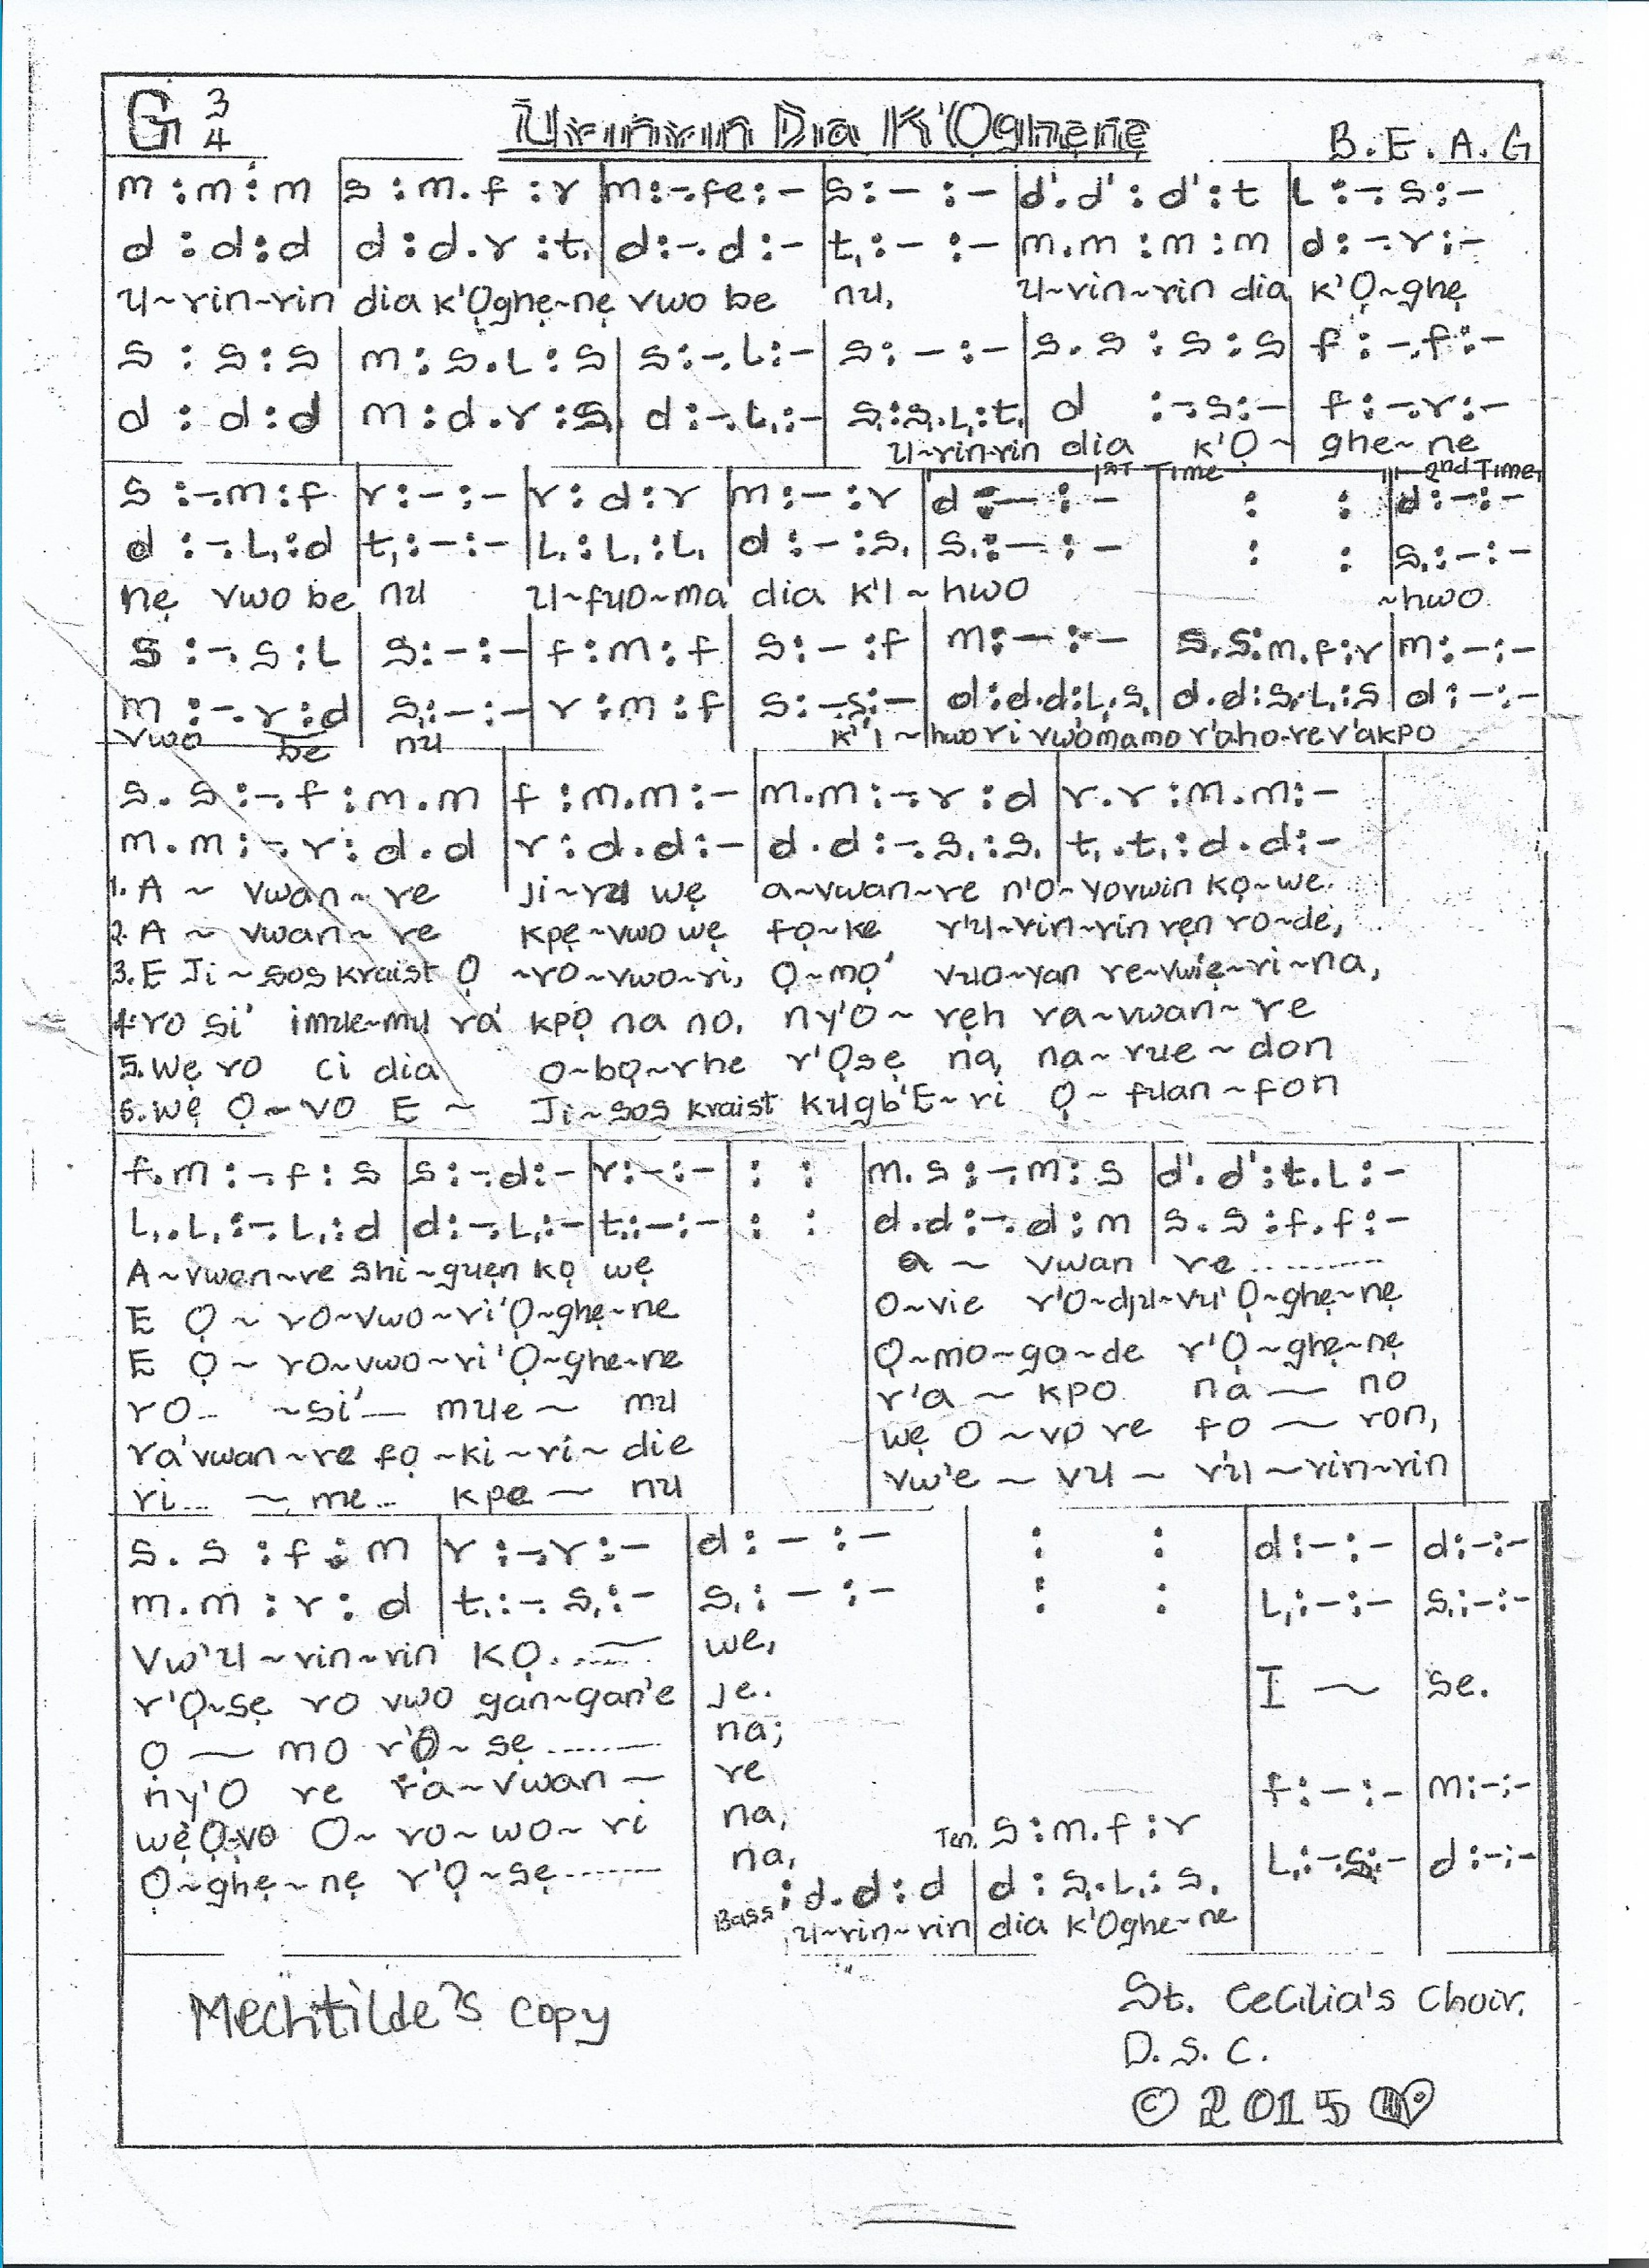 G 3/4 Urinrin Dia K'Oghẹnẹ B.E.A.G
m :m :m |s :m.f :r |m:-.fe:- |s:- :- |d'.d' :d':t |L :-.s:-
d :d:d |d :d.r :t, |d:-.d :- |t,:- :- |m.m :m :m |d: -.r:-
U~rin~rin dia K'Ọghẹ~nẹ vwo be nu, U~rin~rin dia K'Ọ~ghẹ
s : s:s |m :s.L:s |s:-.L:- |s: -:- |s.s :s:s |f :-.f:-
d : d:d |m:d.r:s, |d:-.L,:- |s,:s,.L,:t, |d :-.s:- |f:-.r:-
U~rin-rin dia K'Ọ~ ghe~ne
1ST TIME 2nd TIME
s :-.m:f |r:-:- |r:d:r |m:-:r |d:-:- | : : |d:-:-
d :-.L,:d |t,:-:- |L,:L,:L, |d :-:s, |s,:-:- | : : |s,:-:-
nẹ vwo be nu U~fuo~ma dia K'I~hwo ~hwo
s :-.s:L |s:-:- |f:m:f |s:-:f |m:-:- |s.s:m.f:r |m:-:-
m :-.r:d |s,:-:- |r:m:f |s:-.s:- |d:d.d:L,.s, |d.d:s,.L,:s, |d:-:-
vwo be nu K'I~hwo ri vwomamo r'aho-re v'akpo
s.s:-.f:m.m |f:m.m:- |m.m:-.r:d |r.r:m.m:-
m.m:-.r:d.d |r:d.d:- |d.d:-.s,:s, |t,.t,:d.d:-
1. A ~ vwan~re ji~ru wẹ a~vwan~re n'o~yovwin kọ~we.
2. A ~ vwan~re kpẹ~vwo wẹ fọ~ke r'u~rin~rin rẹn ro~de,
3. E Ji~sos kraist Ọ ~ro~vwo~ri, Ọ~mọ' vuo~yan re~vwiẹ~ri~na,
4. ro si' imue~mu ra' kpọ na no, ny'o~ rẹh ra~vwan~re
5. Wẹ ro ci dia o~bọ~rhe r'Ọsẹ na, na~rue~don
6. wẹ Ọ~vo E~ Ji~sos kraist kugb'E~ri Ọ~fuan~fon
f.m:-.f:s |s:-.d:- |r:-:- | : : |m.s:-.m:s |d'.d':t.L:-
L,.L,:-.L,:d |d:-.L,:- |t,:-:- | : : |d.d:-.d:m |s.s:f.f:-
A~vwan~re shi~guẹn kọ wẹ a ~ vwan re .........
E Ọ ~ ro~vwo~ri'Ọ~ghẹ~ne O~vie r'O~dju~vu' Ọ~ghẹ~nẹ
E Ọ~ ro~vwo~ri'Ọ~ghe~ne Ọ~mo~go~de r'Ọ~ghẹ~nẹ
ro... ~si'— mue~ mu r'a ~ kpo na — no
ra'vwan~re fọ~ki~ri~die wẹ O~vo re fo — ron,
ri... ~ me... kpe~ nu vw'e ~ vu ~ r'u~rin~rin
s.s:f:m |r:-.r:- |d:-:- | : : |d:-:- |d:-:-
m.m:r:d |t,:-.s,:- |s,:-:- | : : |L,:-:- |s,:-:-
Vw'u~rin~rin kọ...— we,
r'Ọ~sẹ ro vwo gan~gan'e je. I ~ se.
Ọ — mo r'Ọ~sẹ ......... na;
ny'O re ra~vwan — re f:-:- |m:-:-
wẹ Ọ~vo O~ro~wo~ri na, Ten. s:m.f:r
Ọ~ghẹ~nẹ r'Ọ~sẹ....... na, L,:-.s,:- |d:-:-
Bass :d.d:d |d:s,.L,:s,
U~rin~rin dia K'Oghe~ne
Mechtilde's copy
St. Cecilia's Choir,
D.S.C.
© 2015